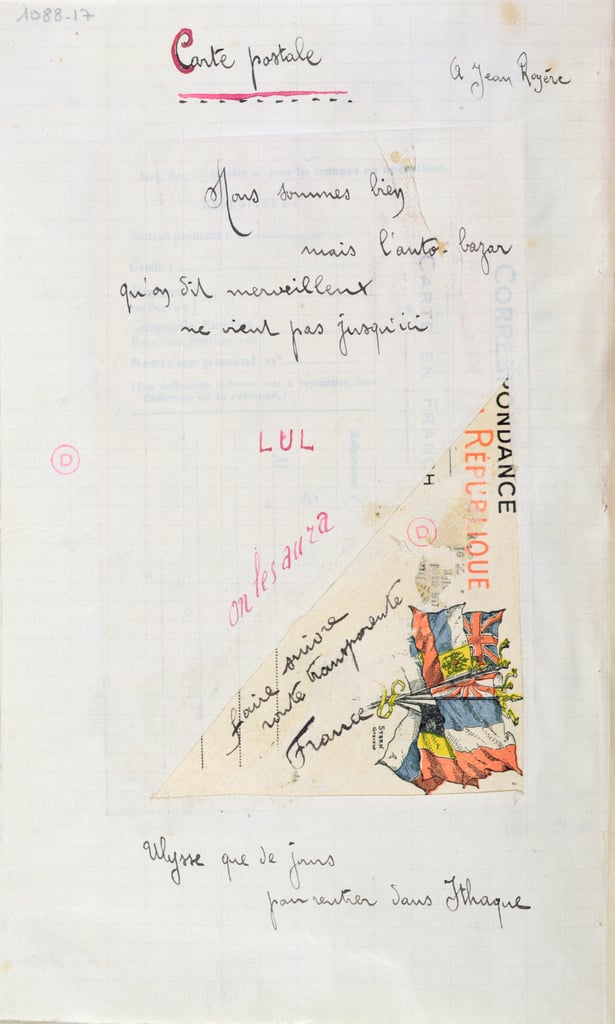 1088-17
Carte postale
A Jean Royère
Nous sommes bien
mais l'auto-bazar
qu'on dit merveilleux
ne vient pas jusqu'ici
LUL
on les aura
D
D
CORRESPONDANCE
RÉPUBLIQUE
faire suivre
route transparente
France
STERN
Graveur
Ulysse que de jours
pour rentrer dans Ithaque